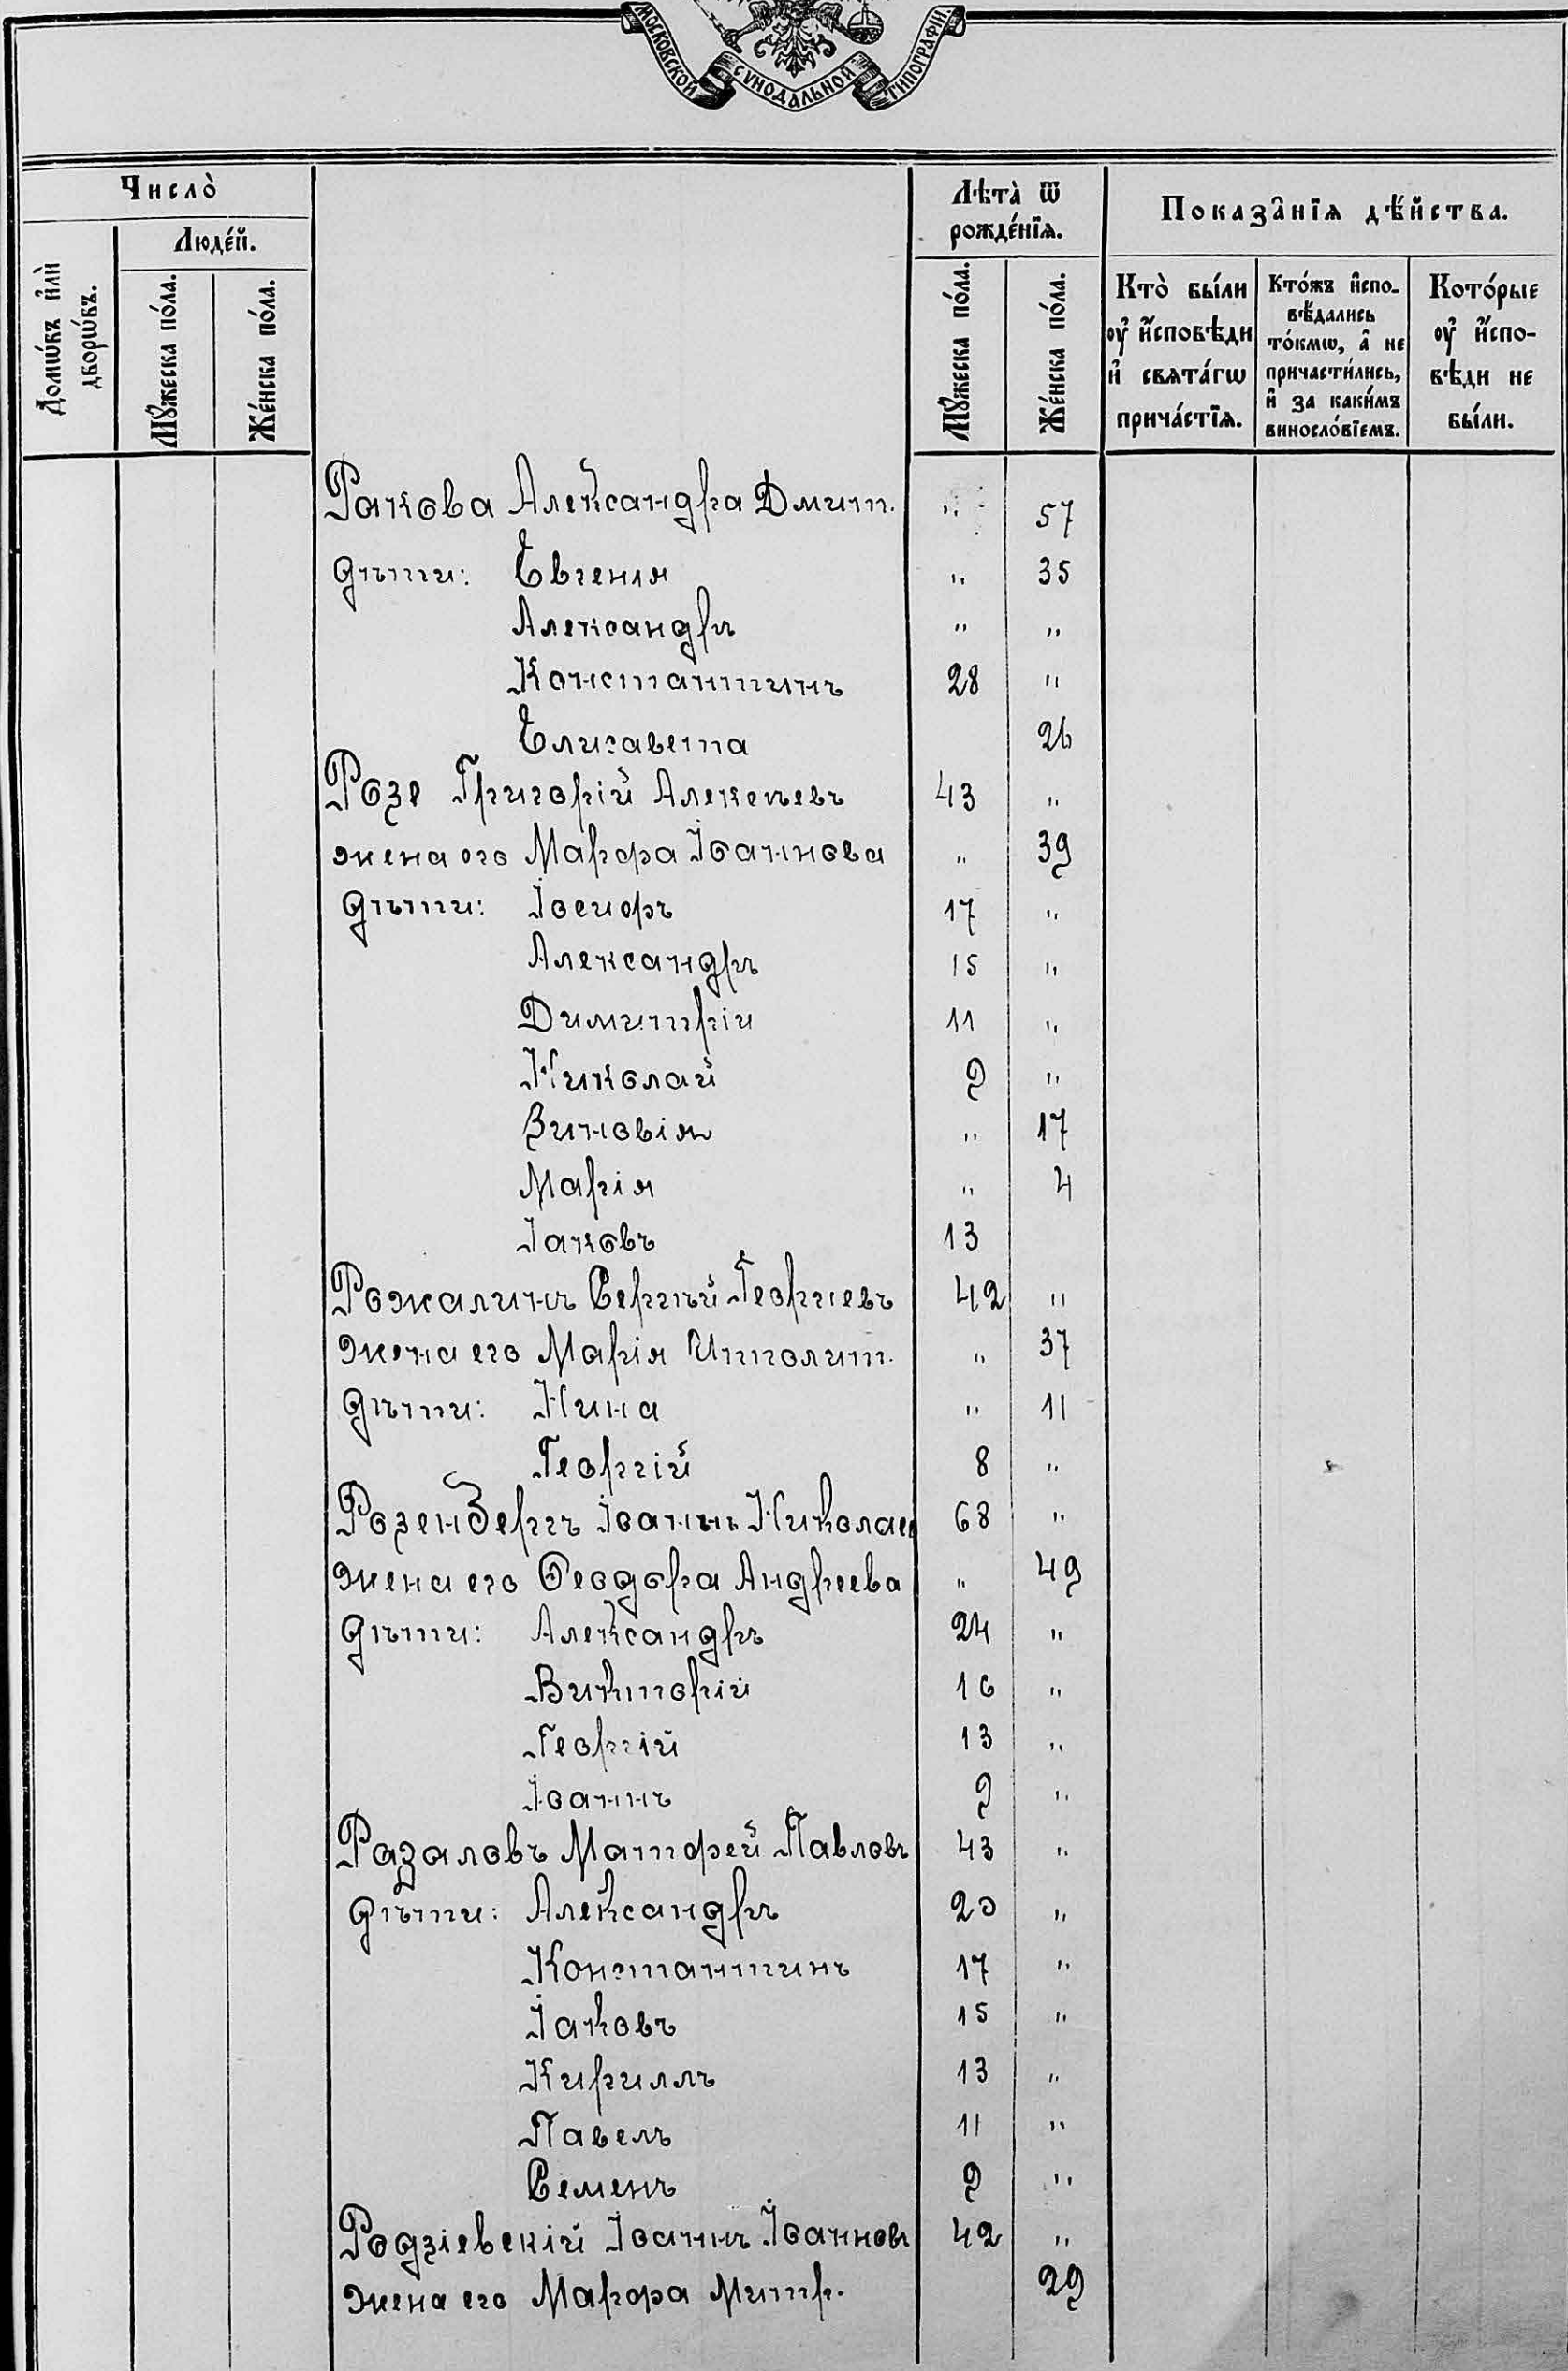 МОСКОВСКОЙ СѴНОДАЛЬНОЙ ТИПОГРАФІИ.
Число̀
Люде́й.
Домѡ́въ и҆лѝ дворѡ́въ.
Мꙋ́жеска по́ла.
Же́нска по́ла.
Лѣта̀ ѿ рожде́нїѧ.
Мꙋ́жеска по́ла.
Же́нска по́ла.
Показа̑нїѧ дѣ́йства.
Кто̀ бы́ли оу҆ и҆́сповѣди и҆ свѧта́гѡ прича́стїѧ.
Кто́жъ и҆спо-вѣ́дались то́кмѡ, а҆ не причасти́лись, и҆ за каки́мъ винословїемъ.
Кото́рые оу҆ и҆́спо-вѣди не бы́ли.
Ракова Александра Дмит. " 57
дѣти: Евгенія " 35
Александръ " "
Константинъ 28 "
Елисавета 26
Розе Григорій Алексѣевъ 43 "
жена его Марфа Іоаннова " 39
дѣти: Іосифъ 17 "
Александръ 15 "
Димитрій 11 "
Николай 9 "
Зиновія " 17
Марія " 4
Іаковъ 13
Рожалинъ Сергѣй Георгіевъ 42 "
жена его Марія Ипполит. " 37
дѣти: Нина " 11
Георгій 8 "
Розенбергъ Іоаннъ Николаев 68 "
жена его Ѳеодора Андреева " 49
дѣти: Александръ 24 "
Викторій 16 "
Георгій 13 "
Іоаннъ 9 "
Разаловъ Матфей Павловъ 43 "
дѣти: Александръ 20 "
Константинъ 17 "
Іаковъ 15 "
Кириллъ 13 "
Павелъ 11 "
Семенъ 9 "
Родзіевскій Іоаннъ Іоанновъ 42 "
жена его Марфа Митр. 29